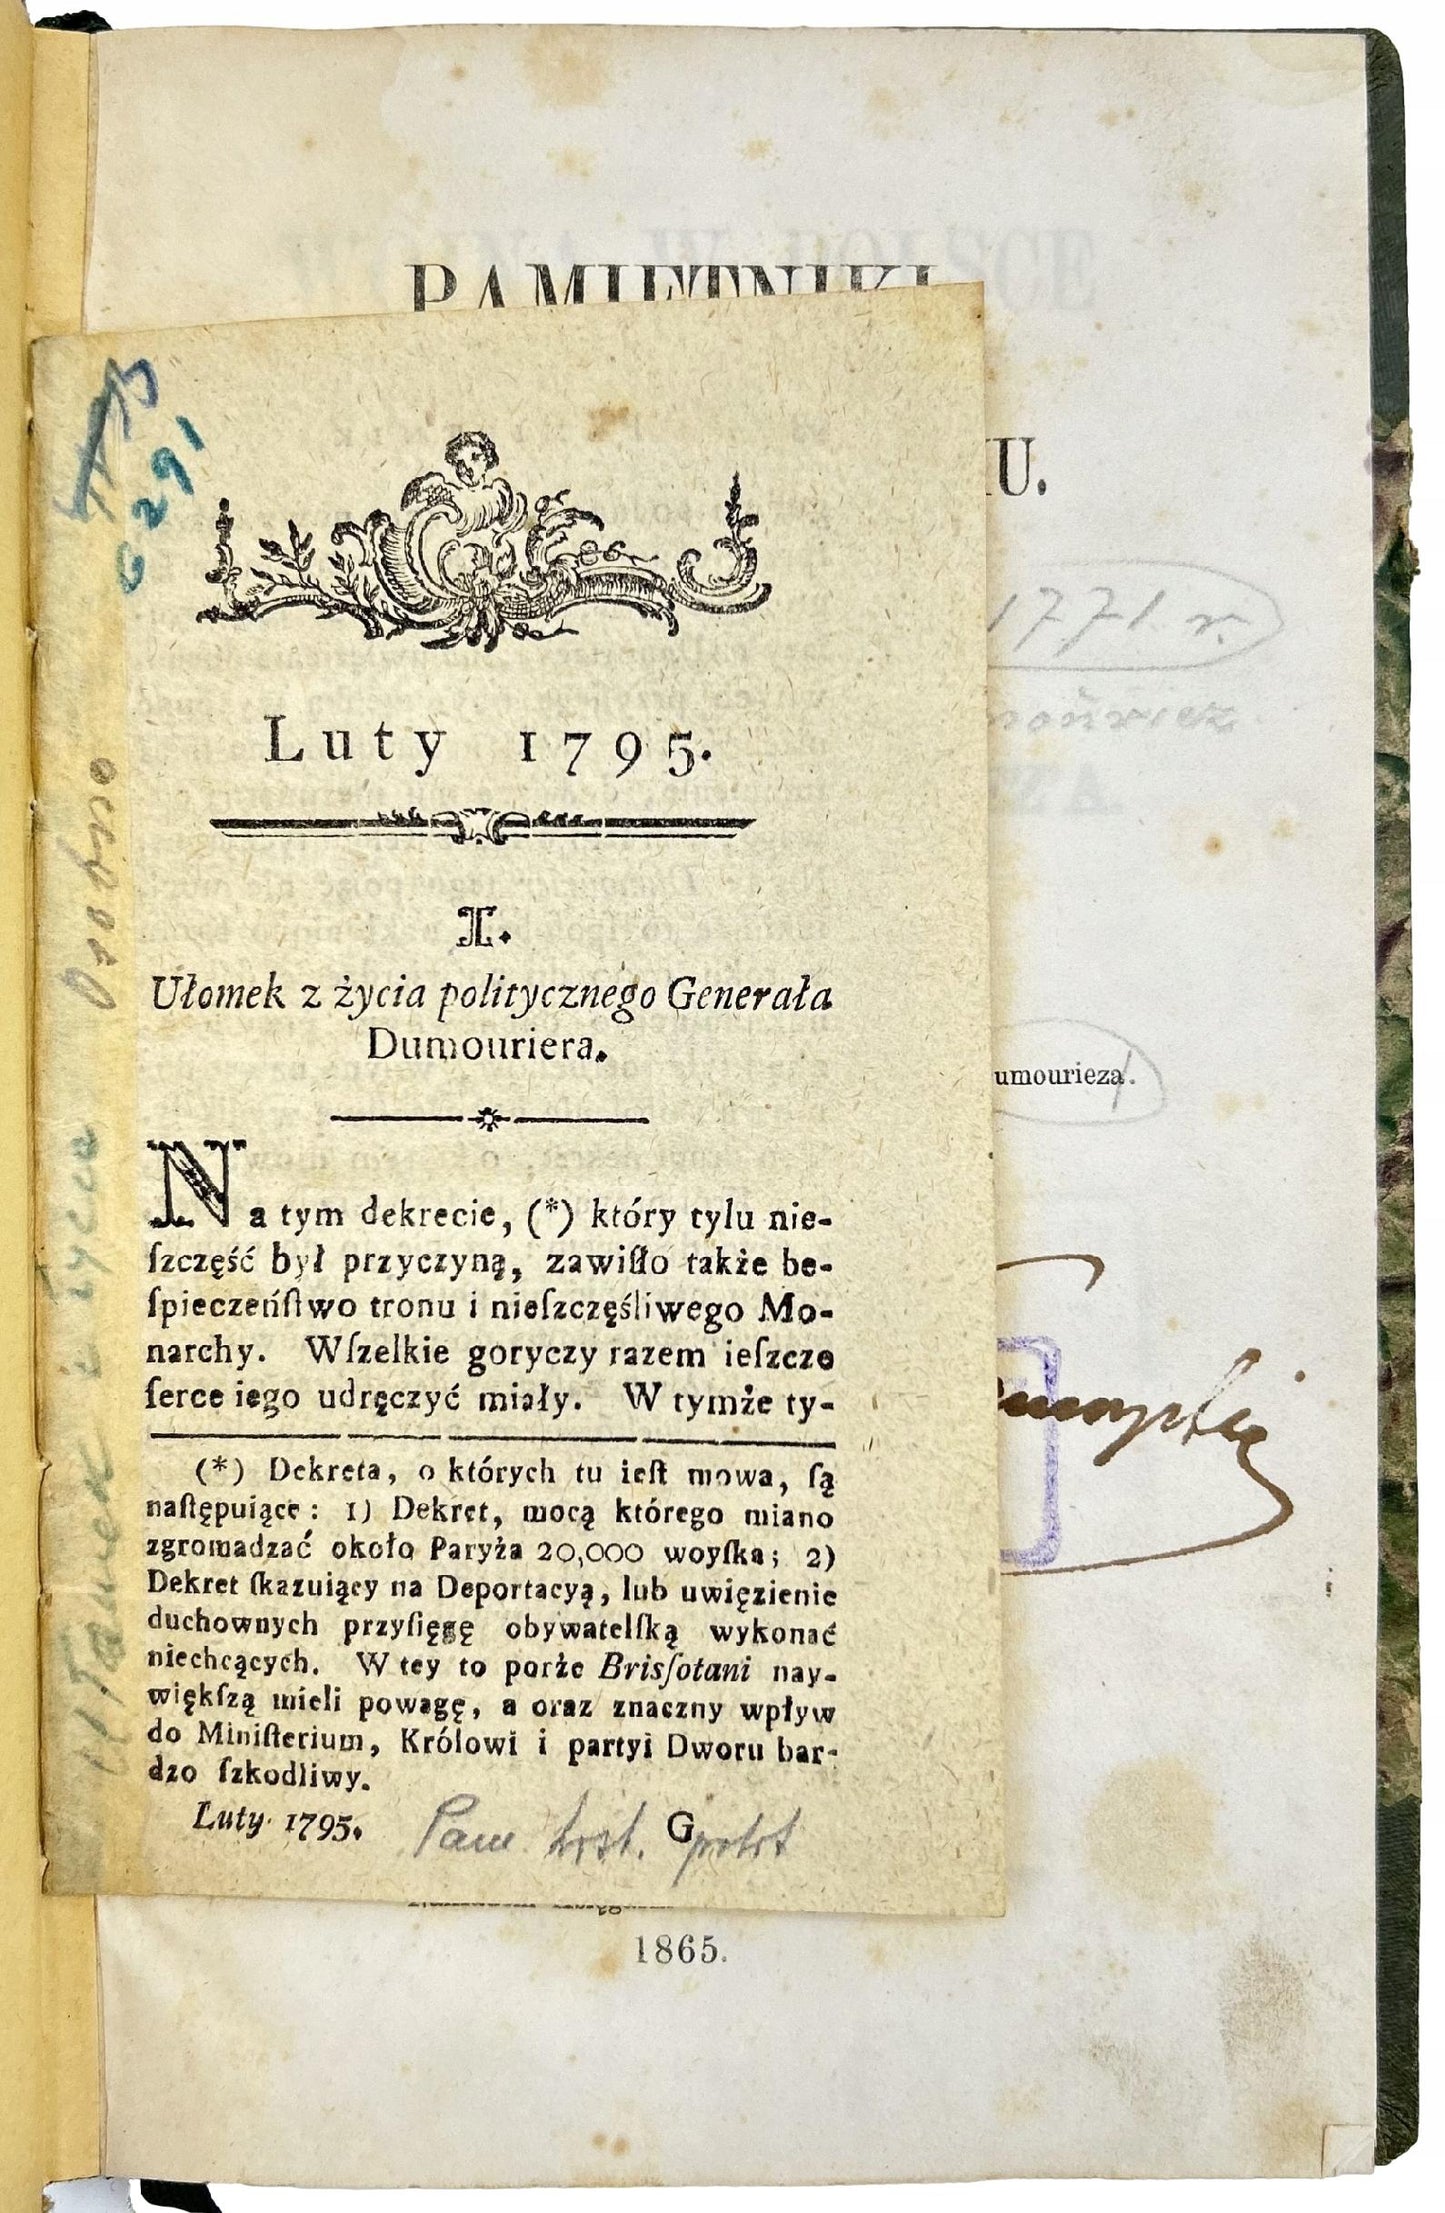 PAMIĘTNIKI
U.
1771 r.
umourieza.
6291
Osobno
Ułamek z życia
Luty 1795.
I.
Ułomek z życia politycznego Generała
Dumouriera.
Na tym dekrecie, (*) który tylu nie-
ſzczęść był przyczyną, zawiſło także be-
ſpieczeńſtwo tronu i nieſzczęśliwego Mo-
narchy. Wſzelkie goryczy razem ieſzcze
ſerce iego udręczyć miały. W tymże ty-
(*) Dekreta, o których tu ieſt mowa, ſą
naſtępuiące: 1) Dekret, mocą którego miano
zgromadzać około Paryża 20,000 woyſka; 2)
Dekret ſkazuiący na Deportacyą, lub uwięzienie
duchownych przyſięgę obywatelſką wykonać
niechcących. W tey to porże Brisſotani nay-
większą mieli powagę, a oraz znaczny wpływ
do Miniſterium, Królowi i partyi Dworu bar-
dzo ſzkodliwy.
Luty 1795. G
Pam hist. polit
1865.